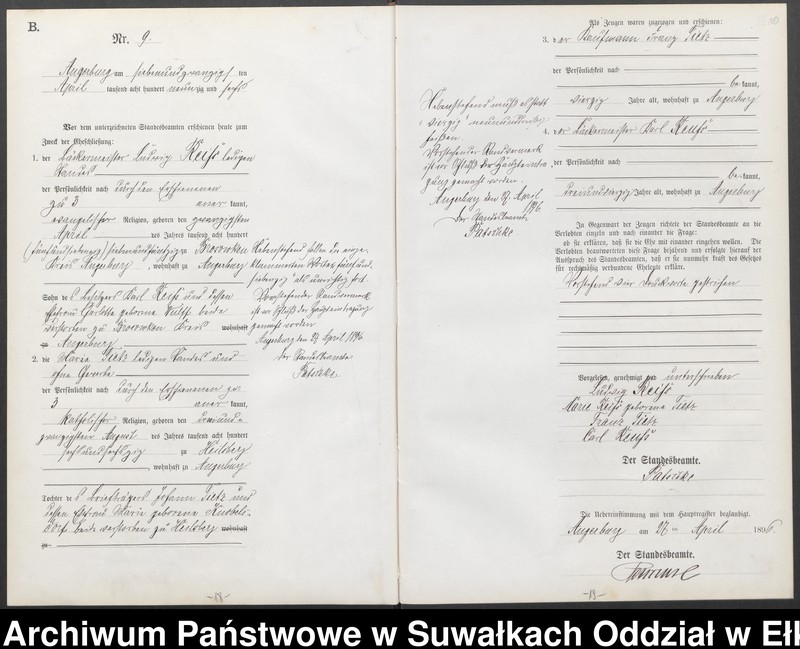 B.
Nr. 9
Angerburg am siebenundzwanzigsten
April tausend acht hundert neunzig und sechs
Vor dem unterzeichneten Standesbeamten erschienen heute zum
Zweck der Eheschließung:
1. der Bäckermeister Ludwig Reiß ledigen
Standes
der Persönlichkeit nach durch den Erschienenen
zu 3 anerkannt,
evangelischer Religion, geboren den zwanzigsten
April des Jahres tausend acht hundert
(fünfundsiebenzig) siebenundfünfzig zu Brosowken
Kreis Angerburg, wohnhaft zu Angerburg
Sohn des Besitzers Karl Reiß und dessen
Ehefrau Charlotte geborene beide
verstorben zu Brosowken Kreis wohnhaft
zu Angerburg
2. die Maria Tietz ledigen Standes und
ohne Gewerbe
der Persönlichkeit nach durch den Erschienenen zu
3 anerkannt,
katholischer Religion, geboren den dreiund-
zwanzigsten August des Jahres tausend acht hundert
sechsundsechszig zu Heilsberg
, wohnhaft zu Angerburg
Tochter des Briefträgers Johann Tietz und
dessen Ehefrau Maria geborene
beide verstorben zu Heilsberg wohnhaft
zu
Nebenstehend sollen die einge-
klammerten Worte „fünfund-
siebenzig" als unrichtig fort.
Vorstehender Randvermerk
ist vor Schluß der Haupteintragung
gemacht worden
Angerburg den 27 April 1896
Der Standesbeamte
Patschke
-18-
Nebenstehend muß es statt
„vierzig" neunundvierzig
heißen.
Vorstehender Randvermerk
ist vor Schluß der Haupteintra
gung gemacht worden.
Angerburg den 27 April
1896
Der Standesbeamte
Patschke
Als Zeugen waren zugezogen und erschienen:
3. der Kaufmann Franz Tietz
der Persönlichkeit nach
bekannt,
vierzig Jahre alt, wohnhaft zu Angerburg
4. der Bäckermeister Karl Reuß
der Persönlichkeit nach
bekannt,
dreiundvierzig Jahre alt, wohnhaft zu Angerburg
In Gegenwart der Zeugen richtete der Standesbeamte an die
Verlobten einzeln und nach einander die Frage:
ob sie erklären, daß sie die Ehe mit einander eingehen wollen. Die
Verlobten beantworteten diese Frage bejahend und erfolgte hierauf der
Ausspruch des Standesbeamten, daß er sie nunmehr kraft des Gesetzes
für rechtmäßig verbundene Eheleute erkläre.
Vorstehend vier Druckworte gestrichen
Vorgelesen, genehmigt und unterschrieben
Ludwig Reiß
Marie Reiß geborene Tietz
Franz Tietz
Carl Reuß
Der Standesbeamte.
Patschke
Die Uebereinstimmung mit dem Hauptregister beglaubigt.
Angerburg am 27 ten April 1896.
Der Standesbeamte.
-19-
Archiwum Państwowe w Suwałkach Oddział w Ełk